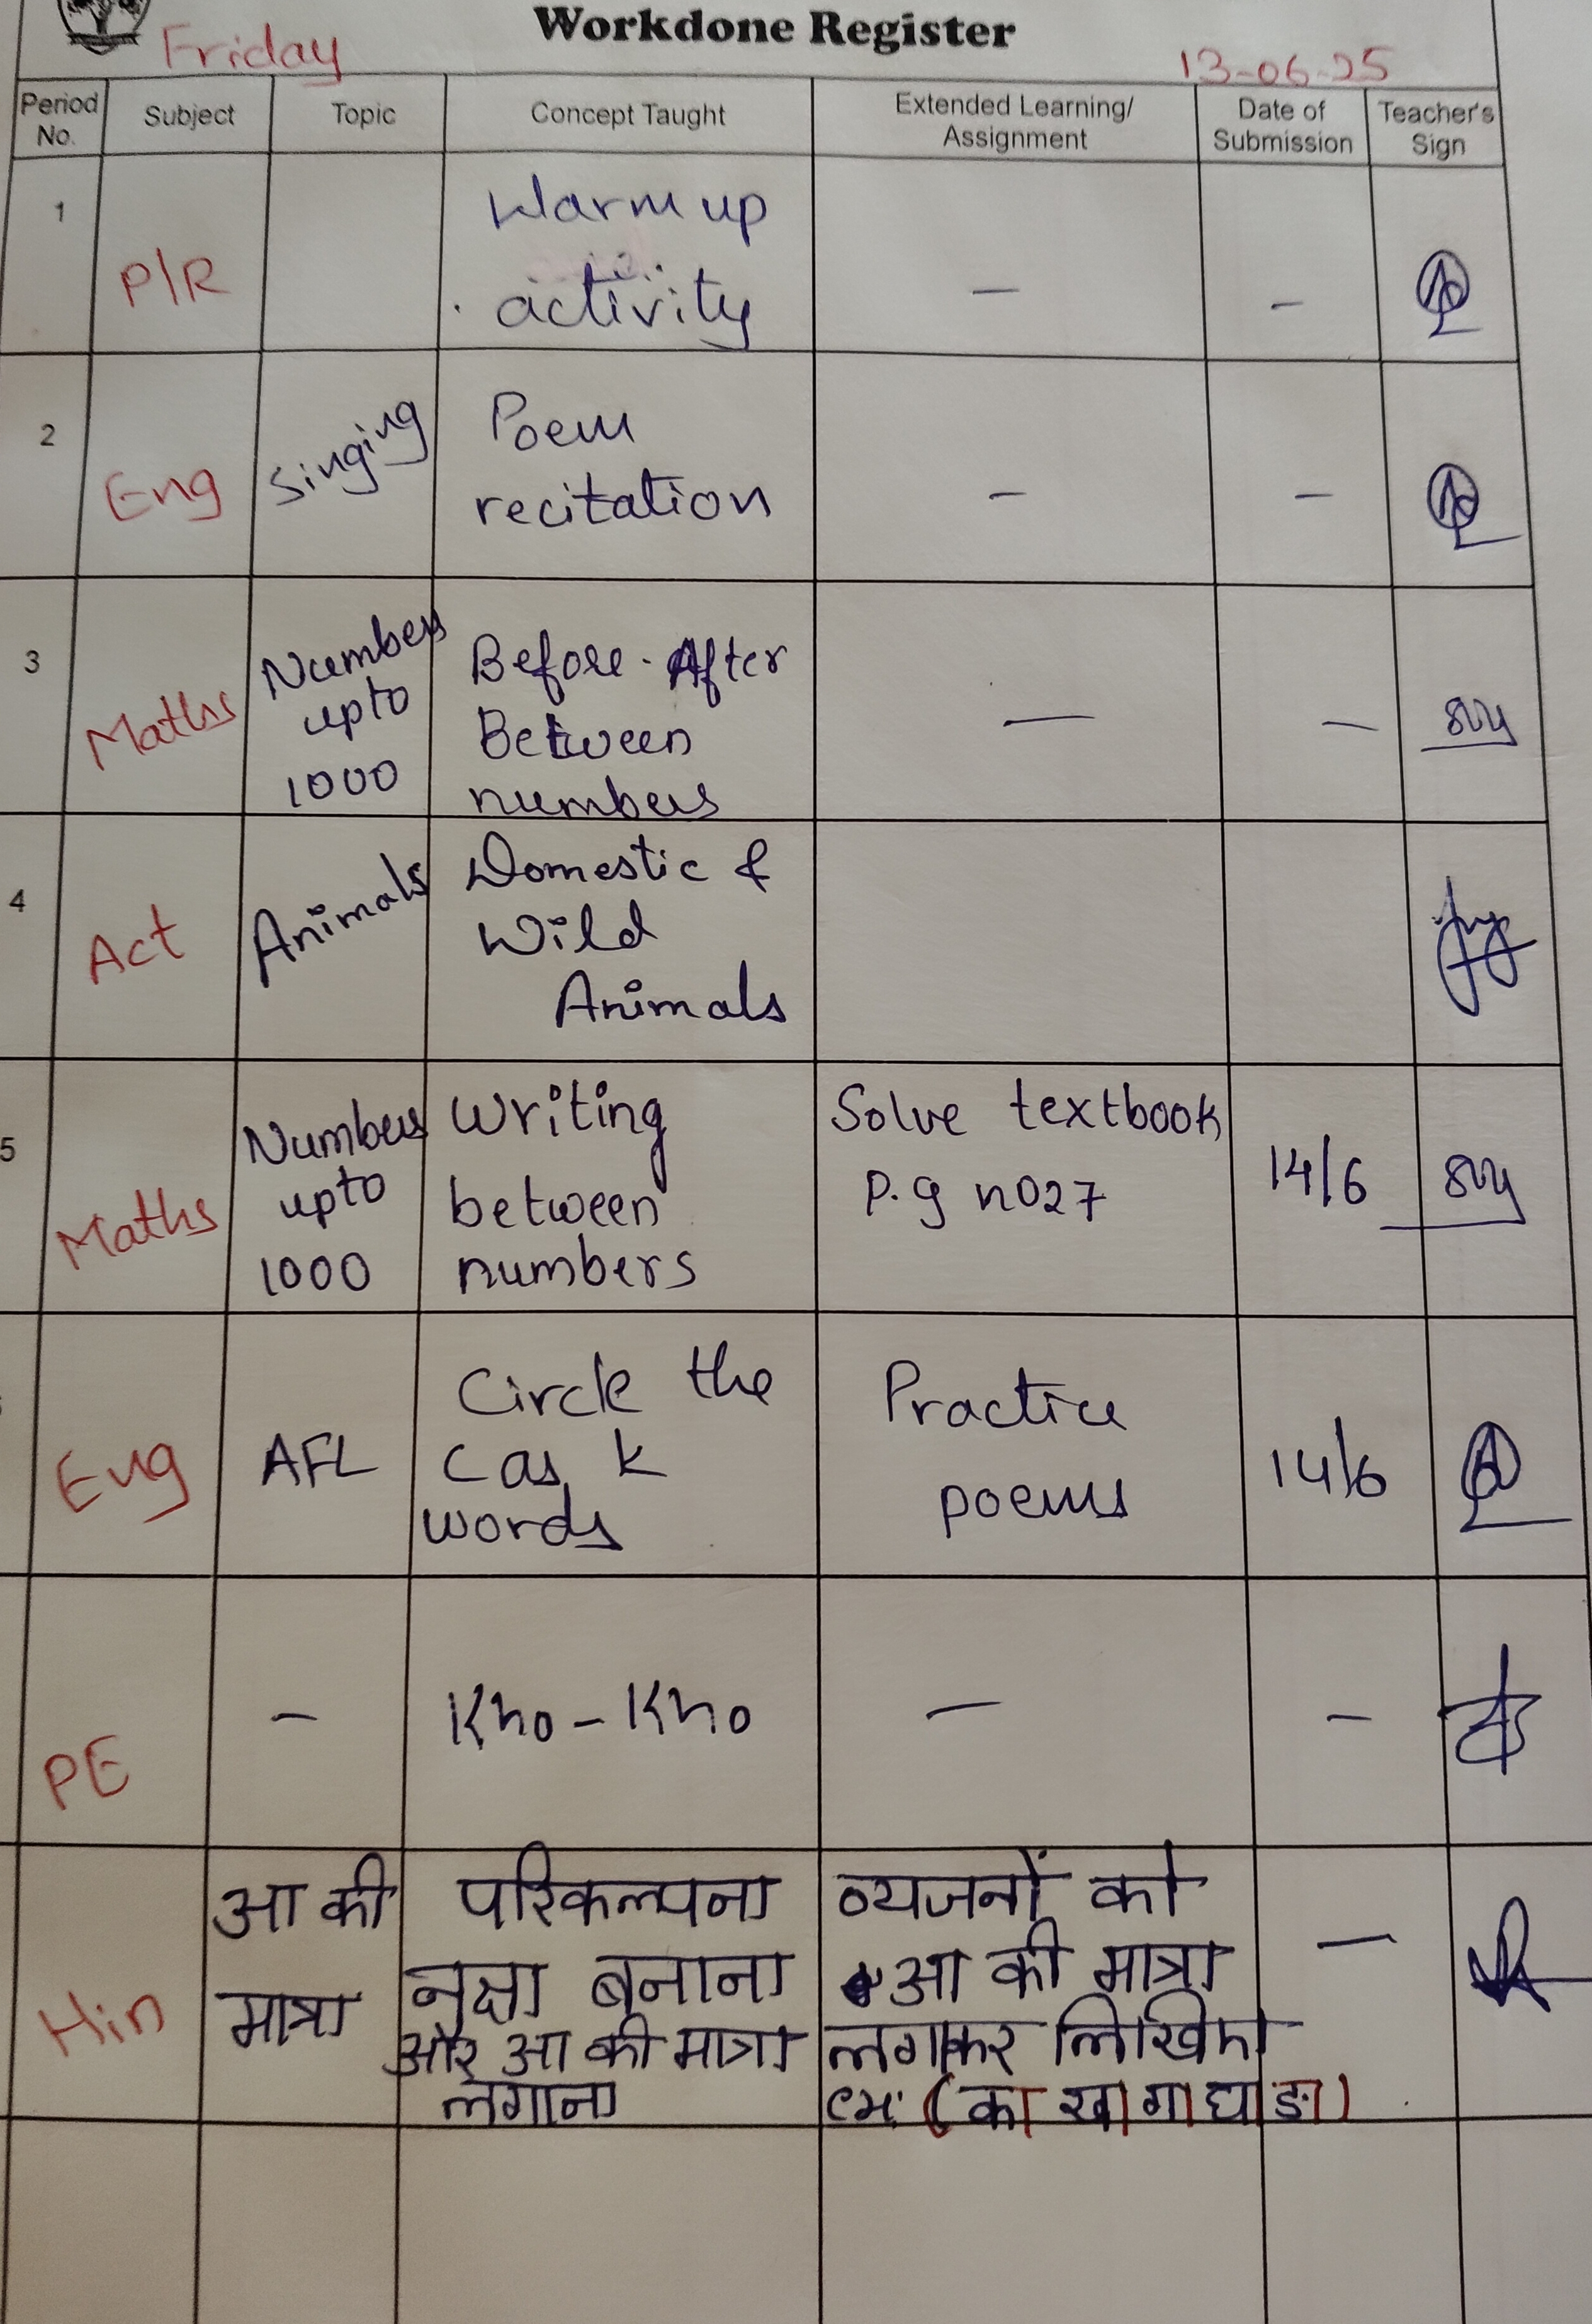 Workdone Register
Friday
13-06-25
Period No.
Subject
Topic
Concept Taught
Extended Learning/
Assignment
Date of
Submission
Teacher's
Sign
1
P/R
Warm up
activity
—
–
2
Eng
Singing
Poem
recitation
–
–
3
Maths
Numbers
upto
1000
Before - After
Between
numbers
—
—
4
Act
Animals
Domestic &
Wild
Animals
5
Maths
Numbers
upto
1000
Writing
between
numbers
Solve textbook
P.g no27
14/6
Eng
AFL
Circle the
C as K
words
Practice
poems
14/6
PE
–
Kho-Kho
—
–
Hin
आ की
मात्रा
परिकल्पना
नक्षा बनाना
और आ की मात्रा
लगाना
व्यजनों को
आ की मात्रा
लगाकर लिखिए
(का खा गा घा ङा)
—